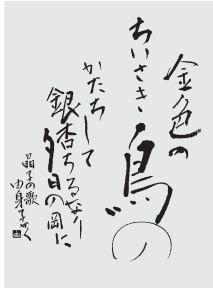 金色の
ちいさき鳥の
かたちして
銀杏ちるなり
夕日の岡に
晶子の歌
由身子かく